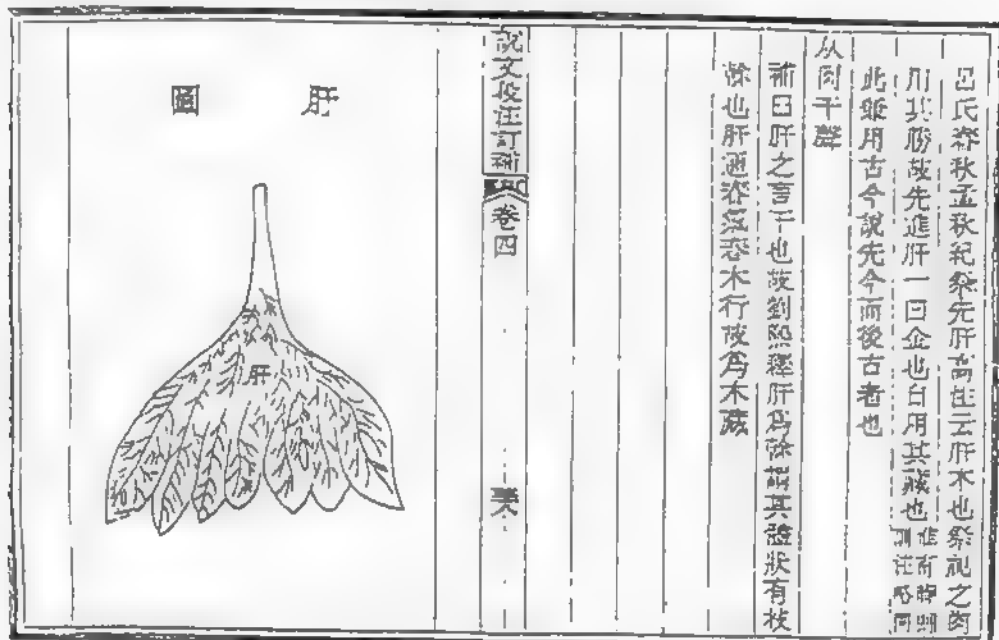 呂氏春秋孟秋紀祭先肝高注云肝木也祭祀之肉
用其勝故先進肝一曰金也自用其藏也 淮南時則訓注略同
此兼用古今說先今而後古者也
从肉干聲
補曰肝之言干也故劉熙釋肝爲榦謂其體狀有枝
榦也肝通春氣春木行故爲木藏
說文段注訂補
卷四
肝圖
肝